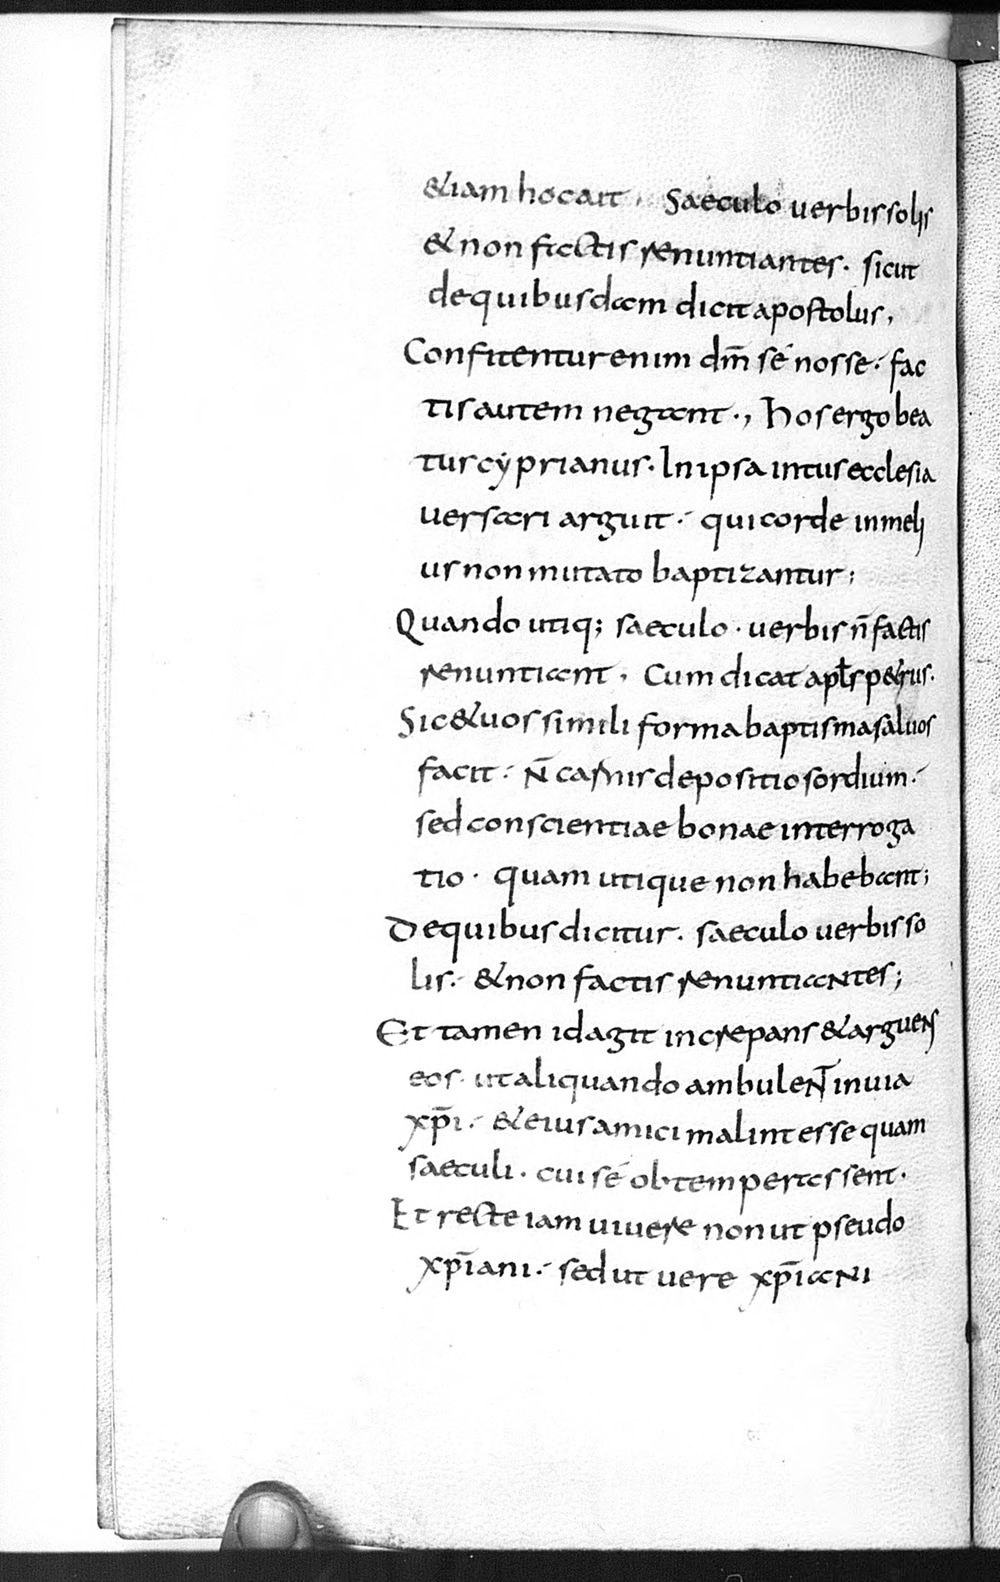 &iam hoc ait. Saeculo uerbis solis
& non factis renuntiantes. sicut
de quibusdam dicit apostolus,
Confitentur enim dm̄ sé nosse; fac
tis autem negant., Hos ergo bea
tus cyprianus. In ipsa intus ecclesia
uersari arguit; qui corde in meli
us non mutato baptizantur;
Quando utiq; saeculo. uerbis n̄ factis
renuntiant, Cum dicat apłs p&rus.
Sic & uos simili forma baptisma saluos
facit; N̄ carnis depositio sordium;
sed conscientiae bonae interroga
tio. quam utique non habebant;
De quibus dicitur. saeculo uerbis so
lis; & non factis renuntiantes;
Et tamen id agit increpans & arguens
eos. ut aliquando ambulent in uia
xp̄i; & eius amici malint esse quam
saeculi. cui sé obtemperassent.
Et recte iam uiuere non ut pseudo
xp̄iani; sed ut uere xp̄iani